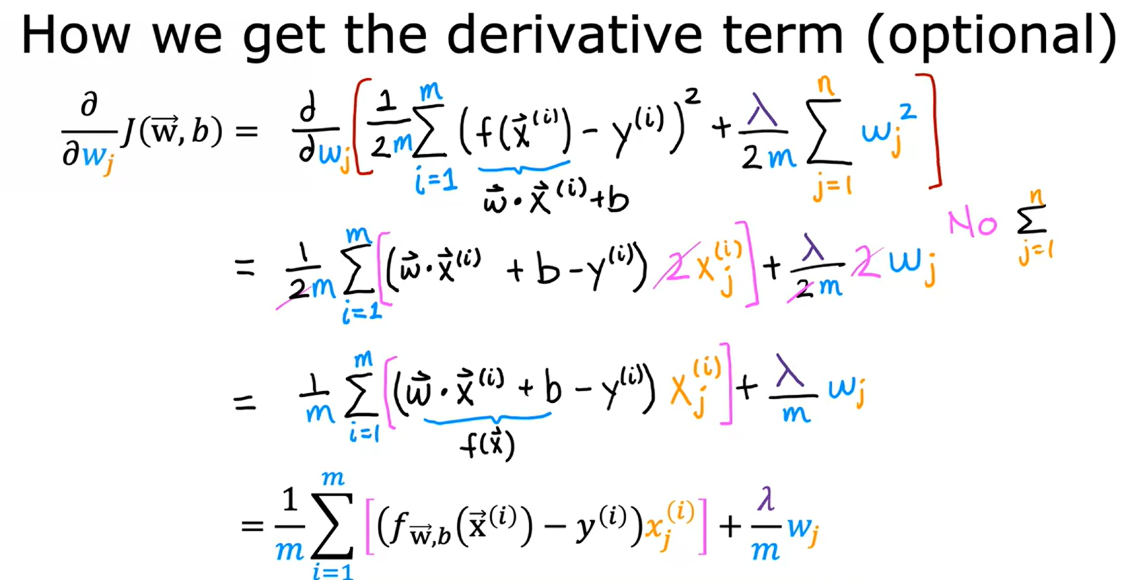 How we get the derivative term (optional)
∂/∂wⱼ J(w⃗, b) = ∂/∂wⱼ [ 1/2m ∑ᵢ₌₁ᵐ (f(x⃗⁽ⁱ⁾) - y⁽ⁱ⁾)² + λ/2m ∑ⱼ₌₁ⁿ wⱼ² ]
w⃗ · x⃗⁽ⁱ⁾ + b
= 1/2m ∑ᵢ₌₁ᵐ [(w⃗ · x⃗⁽ⁱ⁾ + b - y⁽ⁱ⁾) 2 xⱼ⁽ⁱ⁾] + λ/2m 2 wⱼ No ∑ⱼ₌₁ⁿ
= 1/m ∑ᵢ₌₁ᵐ [(w⃗ · x⃗⁽ⁱ⁾ + b - y⁽ⁱ⁾) xⱼ⁽ⁱ⁾] + λ/m wⱼ
f(x⃗)
= 1/m ∑ᵢ₌₁ᵐ [(f_w⃗,b(x⃗⁽ⁱ⁾) − y⁽ⁱ⁾)xⱼ⁽ⁱ⁾] + λ/m wⱼ